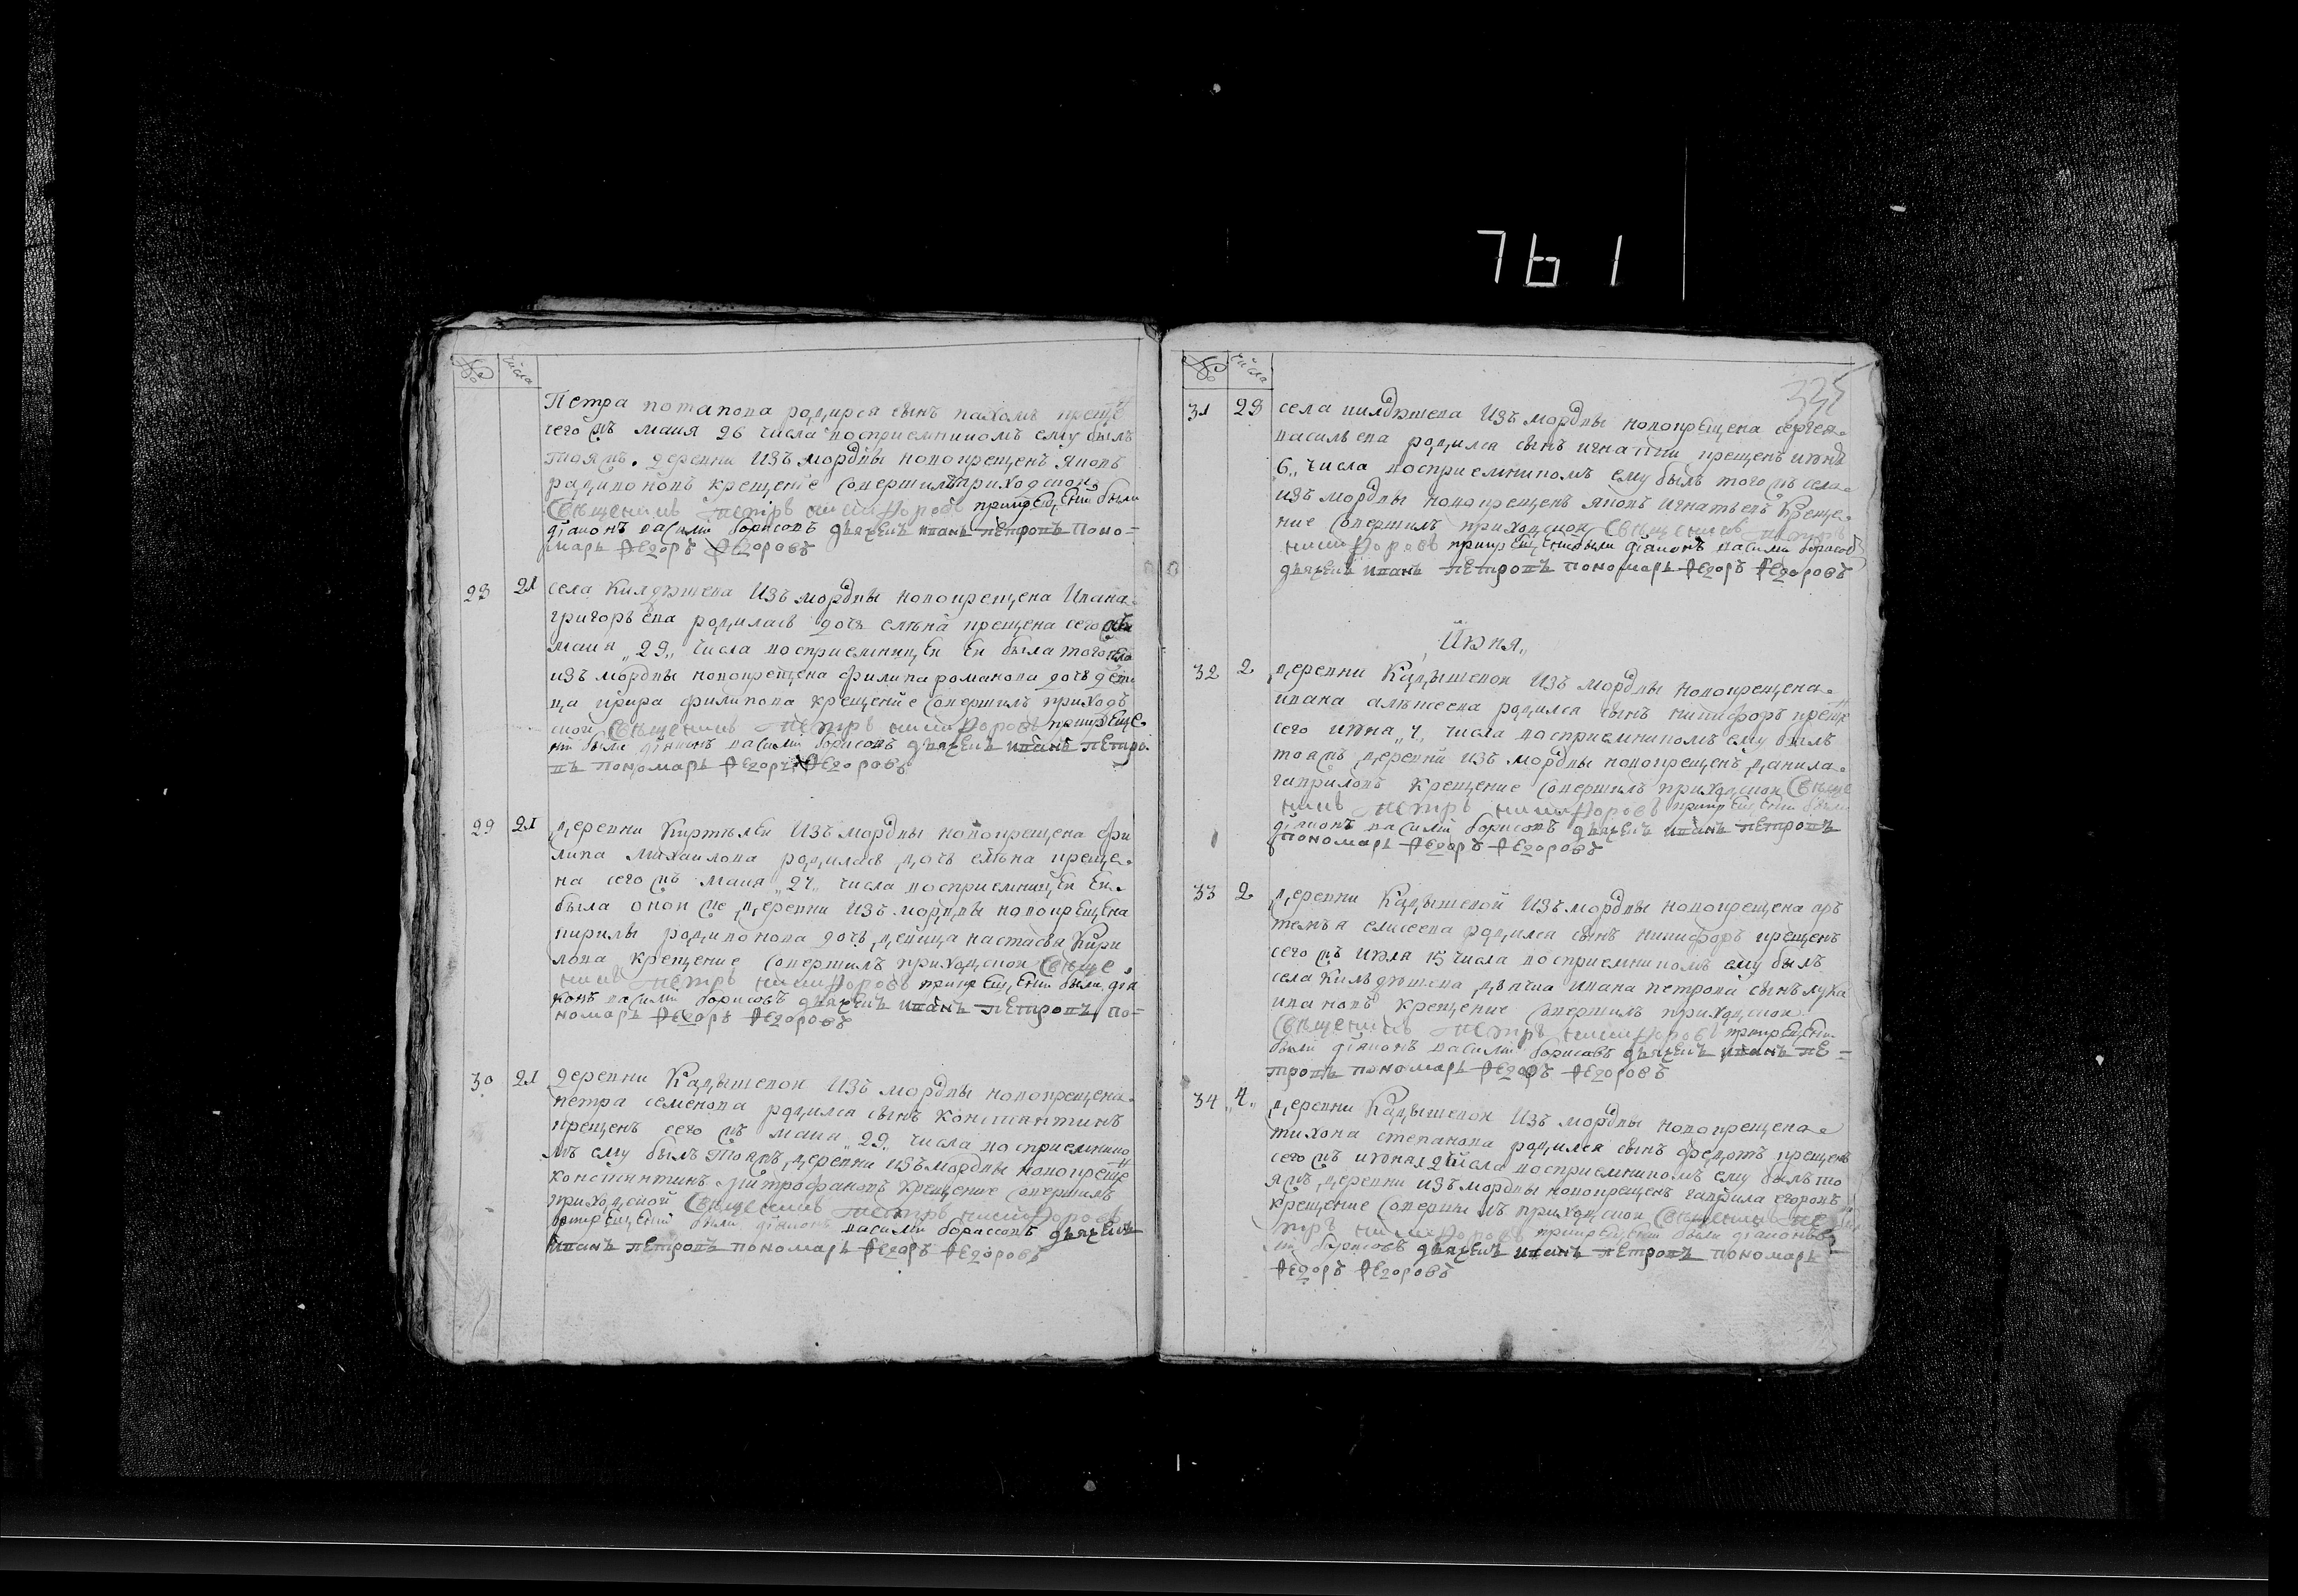 761
№ числа
Петра потапова родился сынъ пахомъ креще
сего жъ маия 26 числа восприемникомъ ему былъ
тояжъ деревни изъ мордвы новокрещенъ яковъ
радивоновъ крещение совершилъ приходской
Священникъ Петръ никифоровъ при крещении были
диаконъ василий борисовъ дьячекъ иванъ петровъ поно=
марь Федоръ Федоровъ
28 21 села Килдюшева изъ мордвы новокрещена Ивана
григорьева родилась дочь елена крещена сего жъ
маия 29 числа восприемницей ей была того села
изъ мордвы новокрещена филипа романова дочь деви
ца филипова крещение совершилъ приход
ской Священникъ Петръ никифоровъ при креще
нии были диаконъ василий борисовъ дьячекъ иванъ петро
въ пономарь Федоръ Федоровъ
29 21 деревни изъ мордвы новокрещена фи
липа михаилова родилась дочь елена креще
на сего жъ маия 27 числа восприемницей ей
была оной же деревни изъ мордвы новокрещена
кирилы родивонова дочь девица настасья Кири
лова крещение совершилъ приходской Свяще
никъ Петръ никифоровъ при крещении были диа
конъ василий борисовъ дьячекъ иванъ петровъ по=
номарь Федоръ Федоровъ
30 21 деревни Кадышевой изъ мордвы новокрещена
петра семенова родился сынъ константинъ
крещенъ сего жъ маия 29 числа восприемнико
мъ ему былъ тояжъ деревни изъ мордвы новокреще
константинъ митрофановъ крещение совершилъ
приходской Священникъ Петръ никифоровъ
при крещении были диаконъ василий борисовъ дьячекъ
иванъ петровъ пономарь Федоръ Федоровъ
№ числа
335
31 29 села килдюшева изъ мордвы новокрещена сергея
васильева родился сынъ игнатий крещенъ июня
6 числа восприемникомъ ему былъ того жъ села
изъ мордвы новокрещенъ яковъ игнатьевъ Креще
ние совершилъ приходской Священникъ Петръ
никифоровъ при крещении были диаконъ василий борисовъ
дьячекъ иванъ петровъ пономарь Федоръ Федоровъ
Июня
32 2 деревни Кадышевой изъ мордвы новокрещена
ивана алексеева родился сынъ никифоръ креще
сего июня 7 числа восприемникомъ ему былъ
тояжъ деревни изъ мордвы новокрещенъ данила
гавриловъ крещение совершилъ приходской Священ
никъ Петръ никифоровъ при крещении были
диаконъ василий борисовъ дьячекъ иванъ петровъ
пономарь Федоръ Федоровъ
33 2 деревни Кадышевой изъ мордвы новокрещена ар
темья елисеева родился сынъ никифоръ крещенъ
сего жъ числа восприемникомъ ему былъ
села Килдюшева дьячка ивана петрова сынъ лука
ивановъ крещение совершилъ приходской
Священникъ Петръ никифоровъ при крещении
были диаконъ василий борисовъ дьячекъ иванъ пе=
тровъ пономарь Федоръ Федоровъ
34 4 деревни Кадышевой изъ мордвы новокрещена
тихона степанова родился сынъ федотъ крещенъ
сего жъ июня числа восприемникомъ ему былъ то
яжъ деревни изъ мордвы новокрещенъ гаврила егоровъ
крещение совершилъ приходской Священникъ Пе
тръ никифоровъ при крещении были диаконъ
ий борисовъ дьячекъ иванъ петровъ пономарь
Федоръ Федоровъ